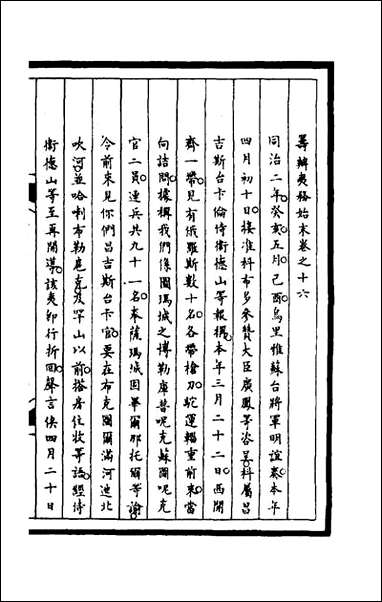 籌辦夷務始末卷之十六
同治二年癸亥五月己酉烏里雅蘇台將軍明誼奏本年
四月初十日接准科布多參贊大臣廣鳳等咨呈科屬昌
吉斯台卡倫侍衛德山等報稱本年三月二十二日西開
齊一帶見有俄羅斯數十名各帶槍刀駝運輜重前來當
向詰問據稱我們係圖瑪城之博勒庫普呢克蘇爾呢克
官二員連兵共九十一名奉薩瑪城固畢爾那托爾等諭
令前來見你們昌吉斯台卡官要在布克圖爾滿河迪北
吹河並哈喇布勒庵克及罕山以前搭房住牧等語經侍
衛德山等至再開導該夷即行折回聲言俟四月二十日